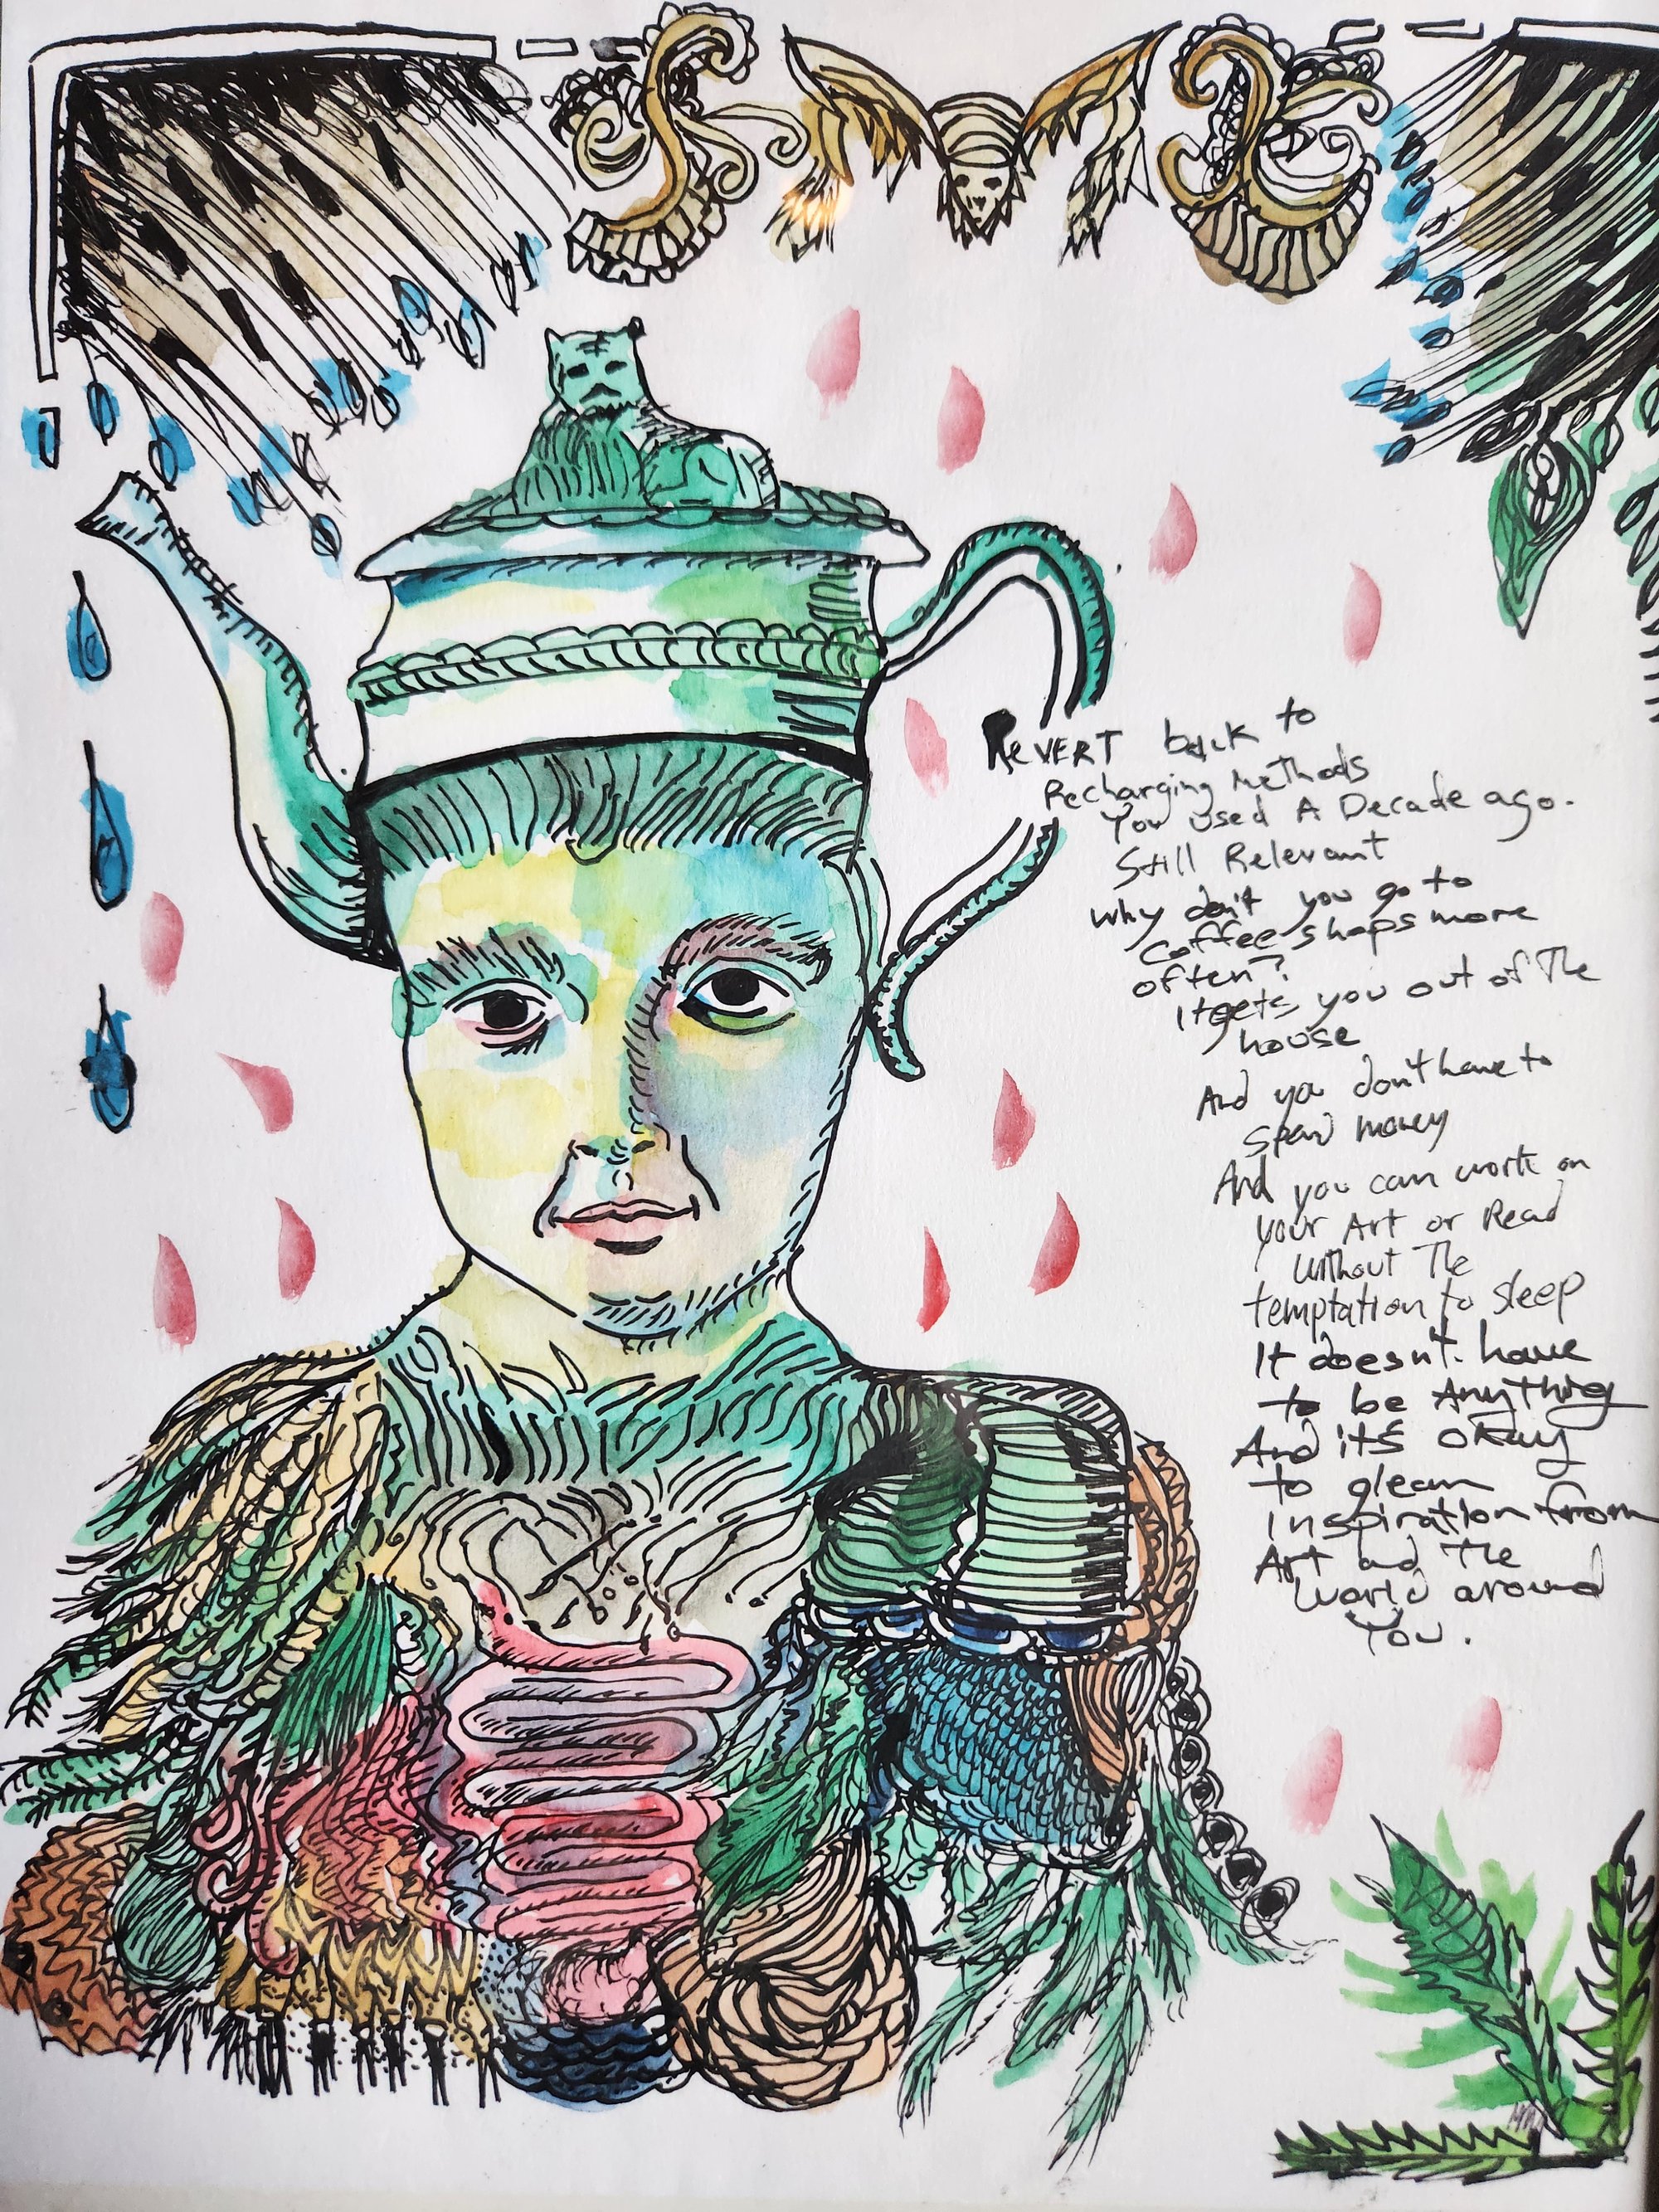 Revert back to
Recharging Methods
You used A Decade ago.
Still Relevant
Why don't you go to
Coffee shops more
often?
It gets you out of The
house
And you don't have to
spend money
And you can work on
your Art or Read
without The
temptation to sleep
It doesn't have
to be Anything
And it's okay
to glean
inspiration from
Art and The
world around
You.